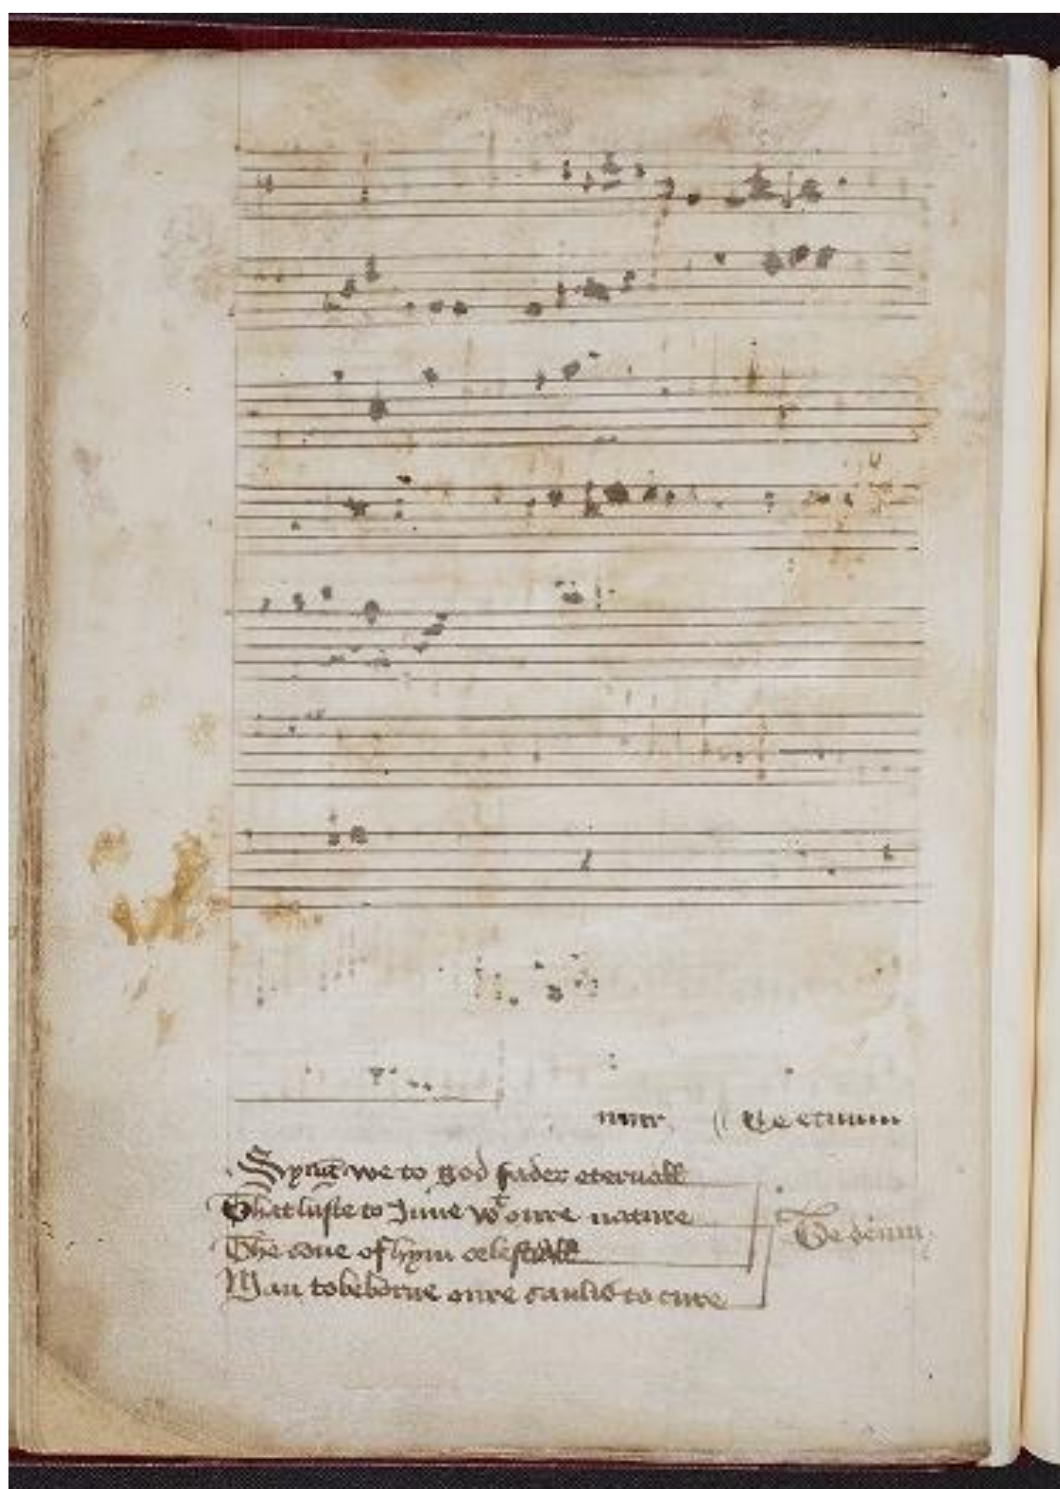 Te eternum
Syng we to god fader eternall
That luste to June wt oure nature
The sone of hym celestiall
Te deum
Man to be borne oure saulis to cure